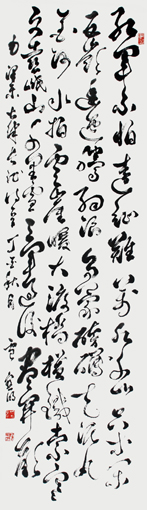 红军不怕远征难万水千山只等闲
五岭逶迤腾细浪乌蒙磅礴走泥丸
金沙水拍云崖暖大渡桥横铁索寒
更喜岷山千里雪三军过后尽开颜
丁亥秋月